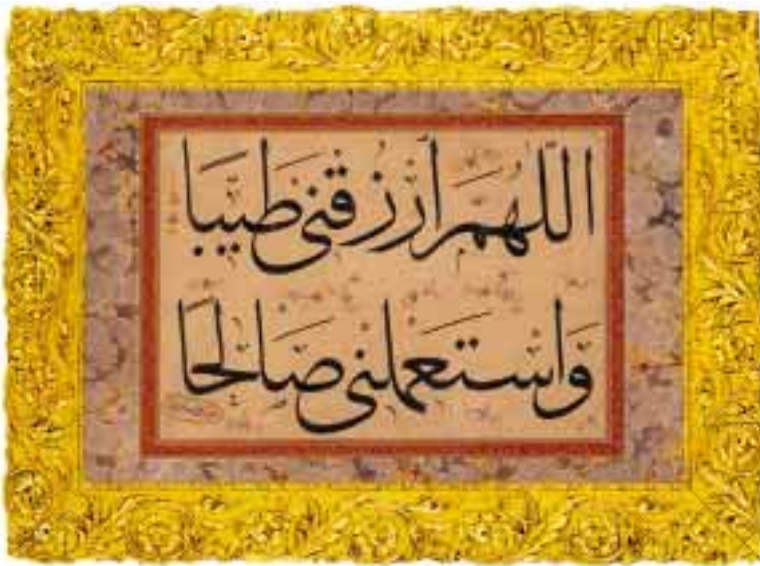 اللهم ارزقنى طيبا
واستعملنى صالحا